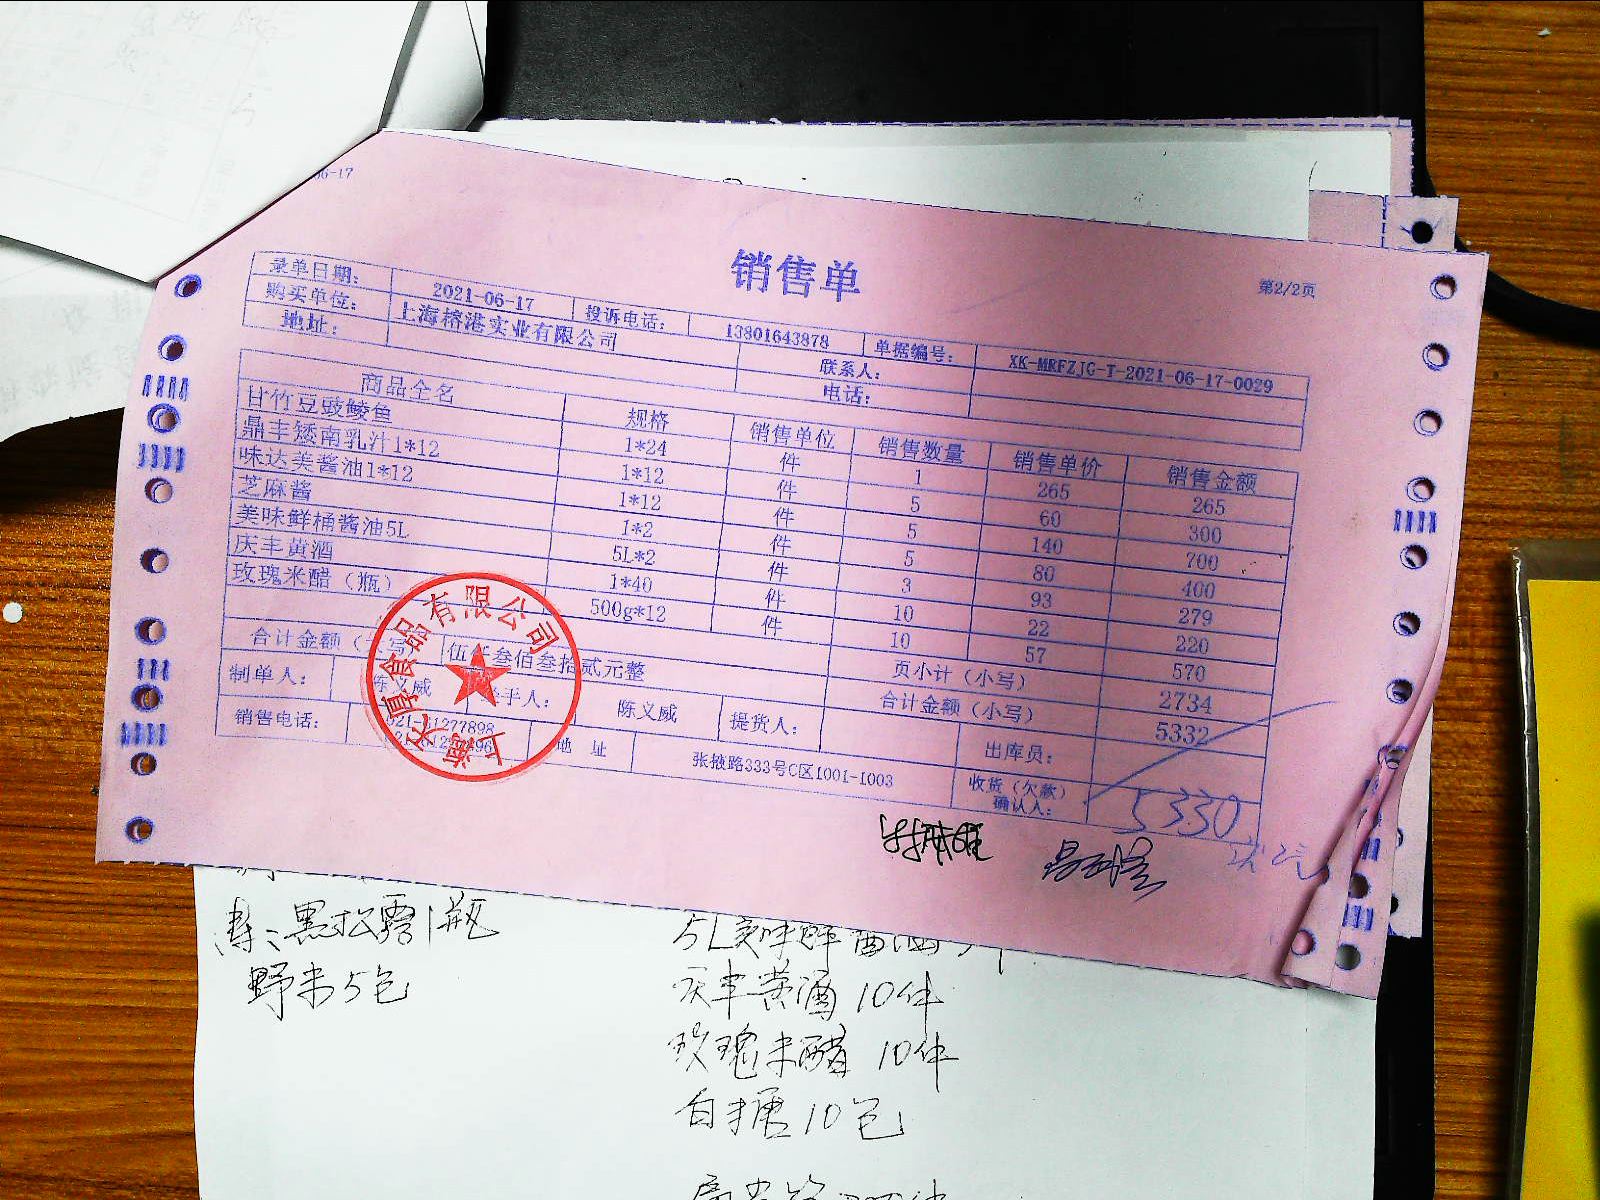 06-17
销售单
第2/2页
录单日期： 2021-06-17 投诉电话： 13801643878 单据编号： XK-MRFZJG-T-2021-06-17-0029
购买单位： 上海榕港实业有限公司 联系人：
地址： 电话：
商品全名 规格 销售单位 销售数量 销售单价 销售金额
甘竹豆豉鲮鱼 1*24 件 1 265 265
鼎丰矮南乳汁1*12 1*12 件 5 60 300
味达美酱油1*12 1*12 件 5 140 700
芝麻酱 1*2 件 5 80 400
美味鲜桶酱油5L 5L*2 件 3 93 279
庆丰黄酒 1*40 件 10 22 220
玫瑰米醋（瓶） 500g*12 件 10 57 570
页小计（小写） 2734
合计金额（大写） 伍仟叁佰叁拾贰元整 合计金额（小写） 5332
制单人： 陈义威 经手人： 陈义威 提货人： 出库员：
销售电话： 021-61277898 地址 张掖路333号C区1001-1003 收货（欠款）确认人：
5330
食品有限公司
上海
黑松露1瓶
野米5包
庆丰黄酒 10件
玫瑰米醋 10件
白糖10包